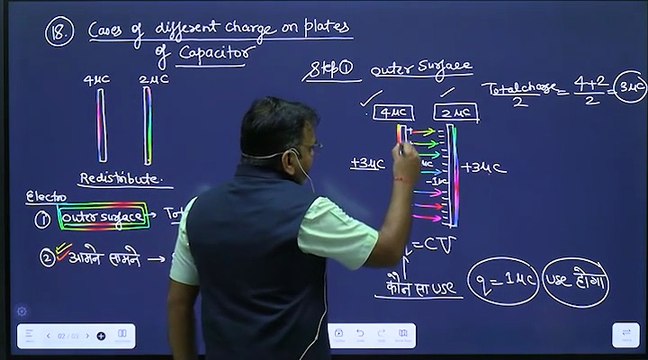 18. Cases of different charge on plates
of Capacitor
4μC 2μC
Redistribute.
Electro
① Outer surface →
② आमने सामने →
Step ① outer surface
Total charge/2 = 4+2/2 = 3μC
4μC 2μC
+3μC -1μC +3μC
=CV
कौन सा use q=1μC use होगा